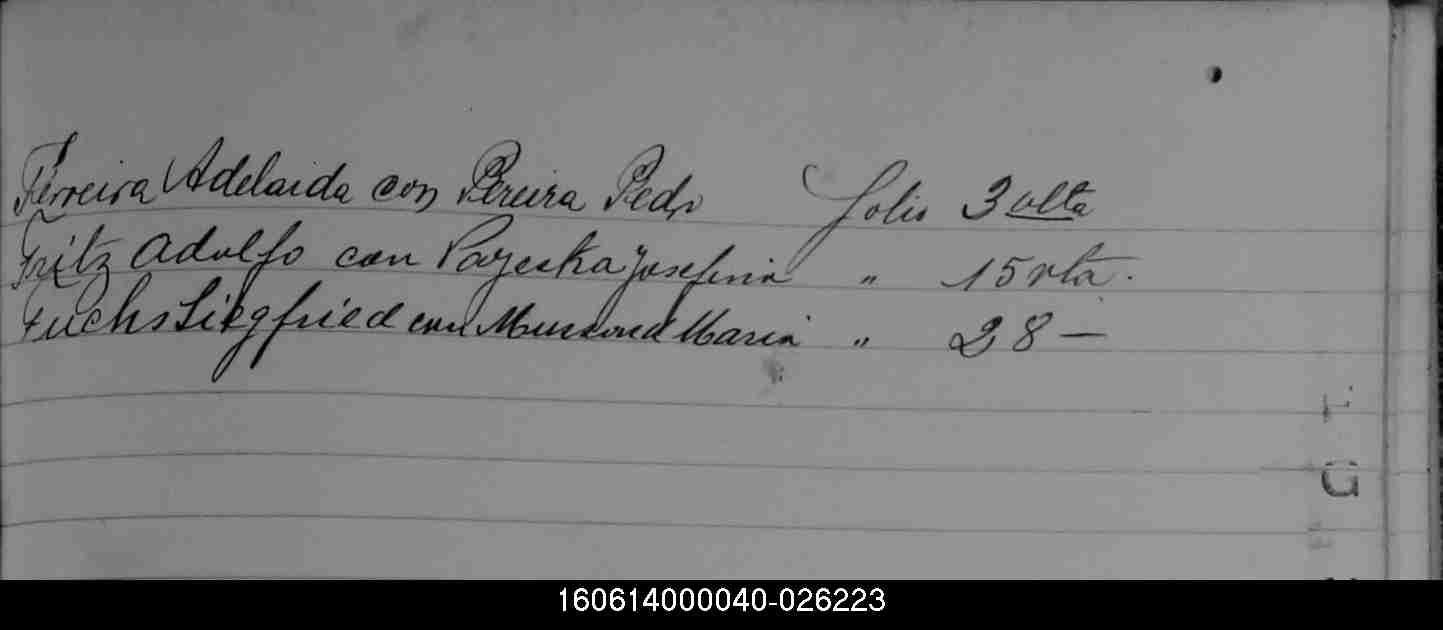 Ferreira Adelaida con Pereira Pedr folio 3 vlta
Fritz Adolfo con Josefina " 15 vta.
Fuchs Siegfried con Maria " 28 —
160614000040-026223